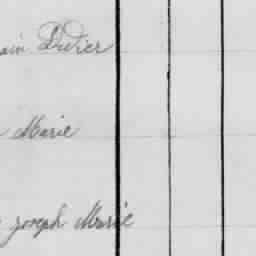 ain Didier
Marie
joseph Marie